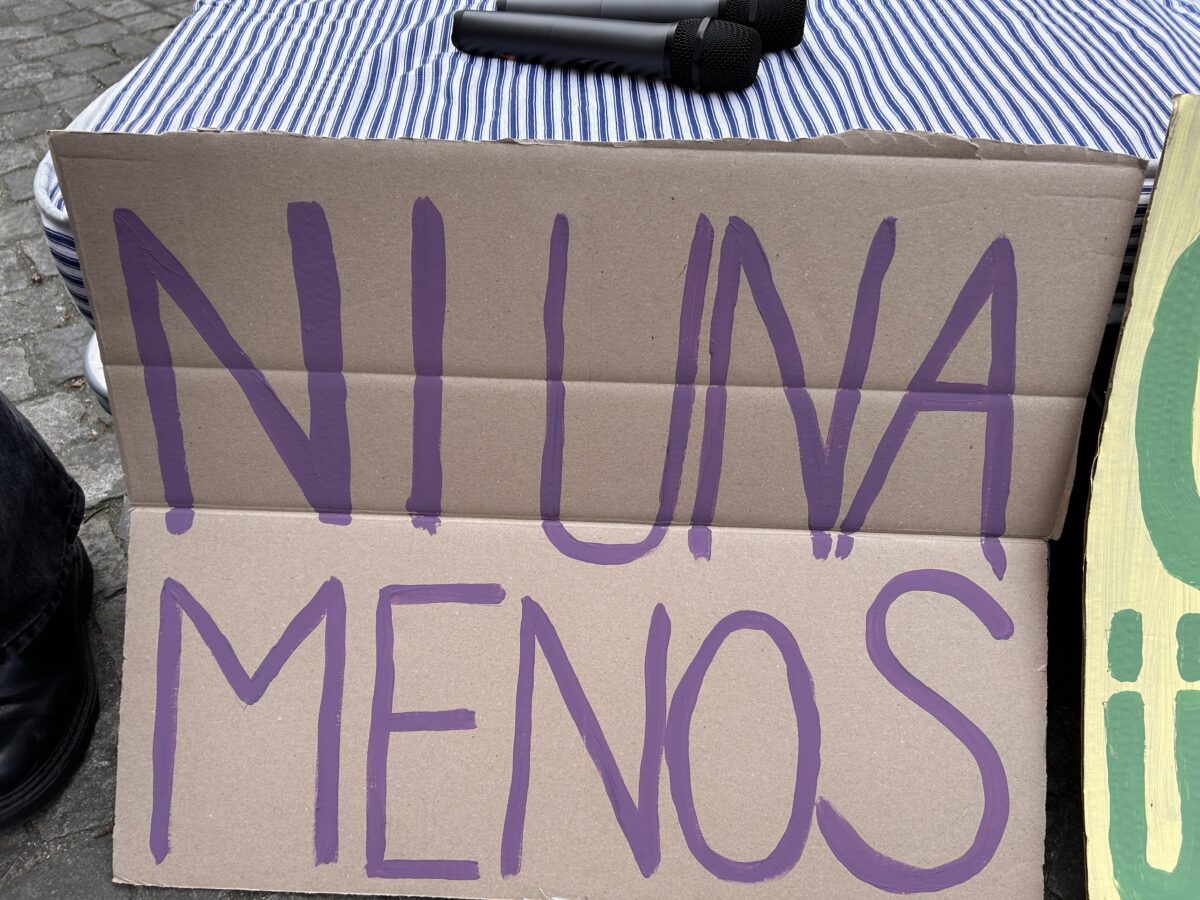 NI UNA
MENOS